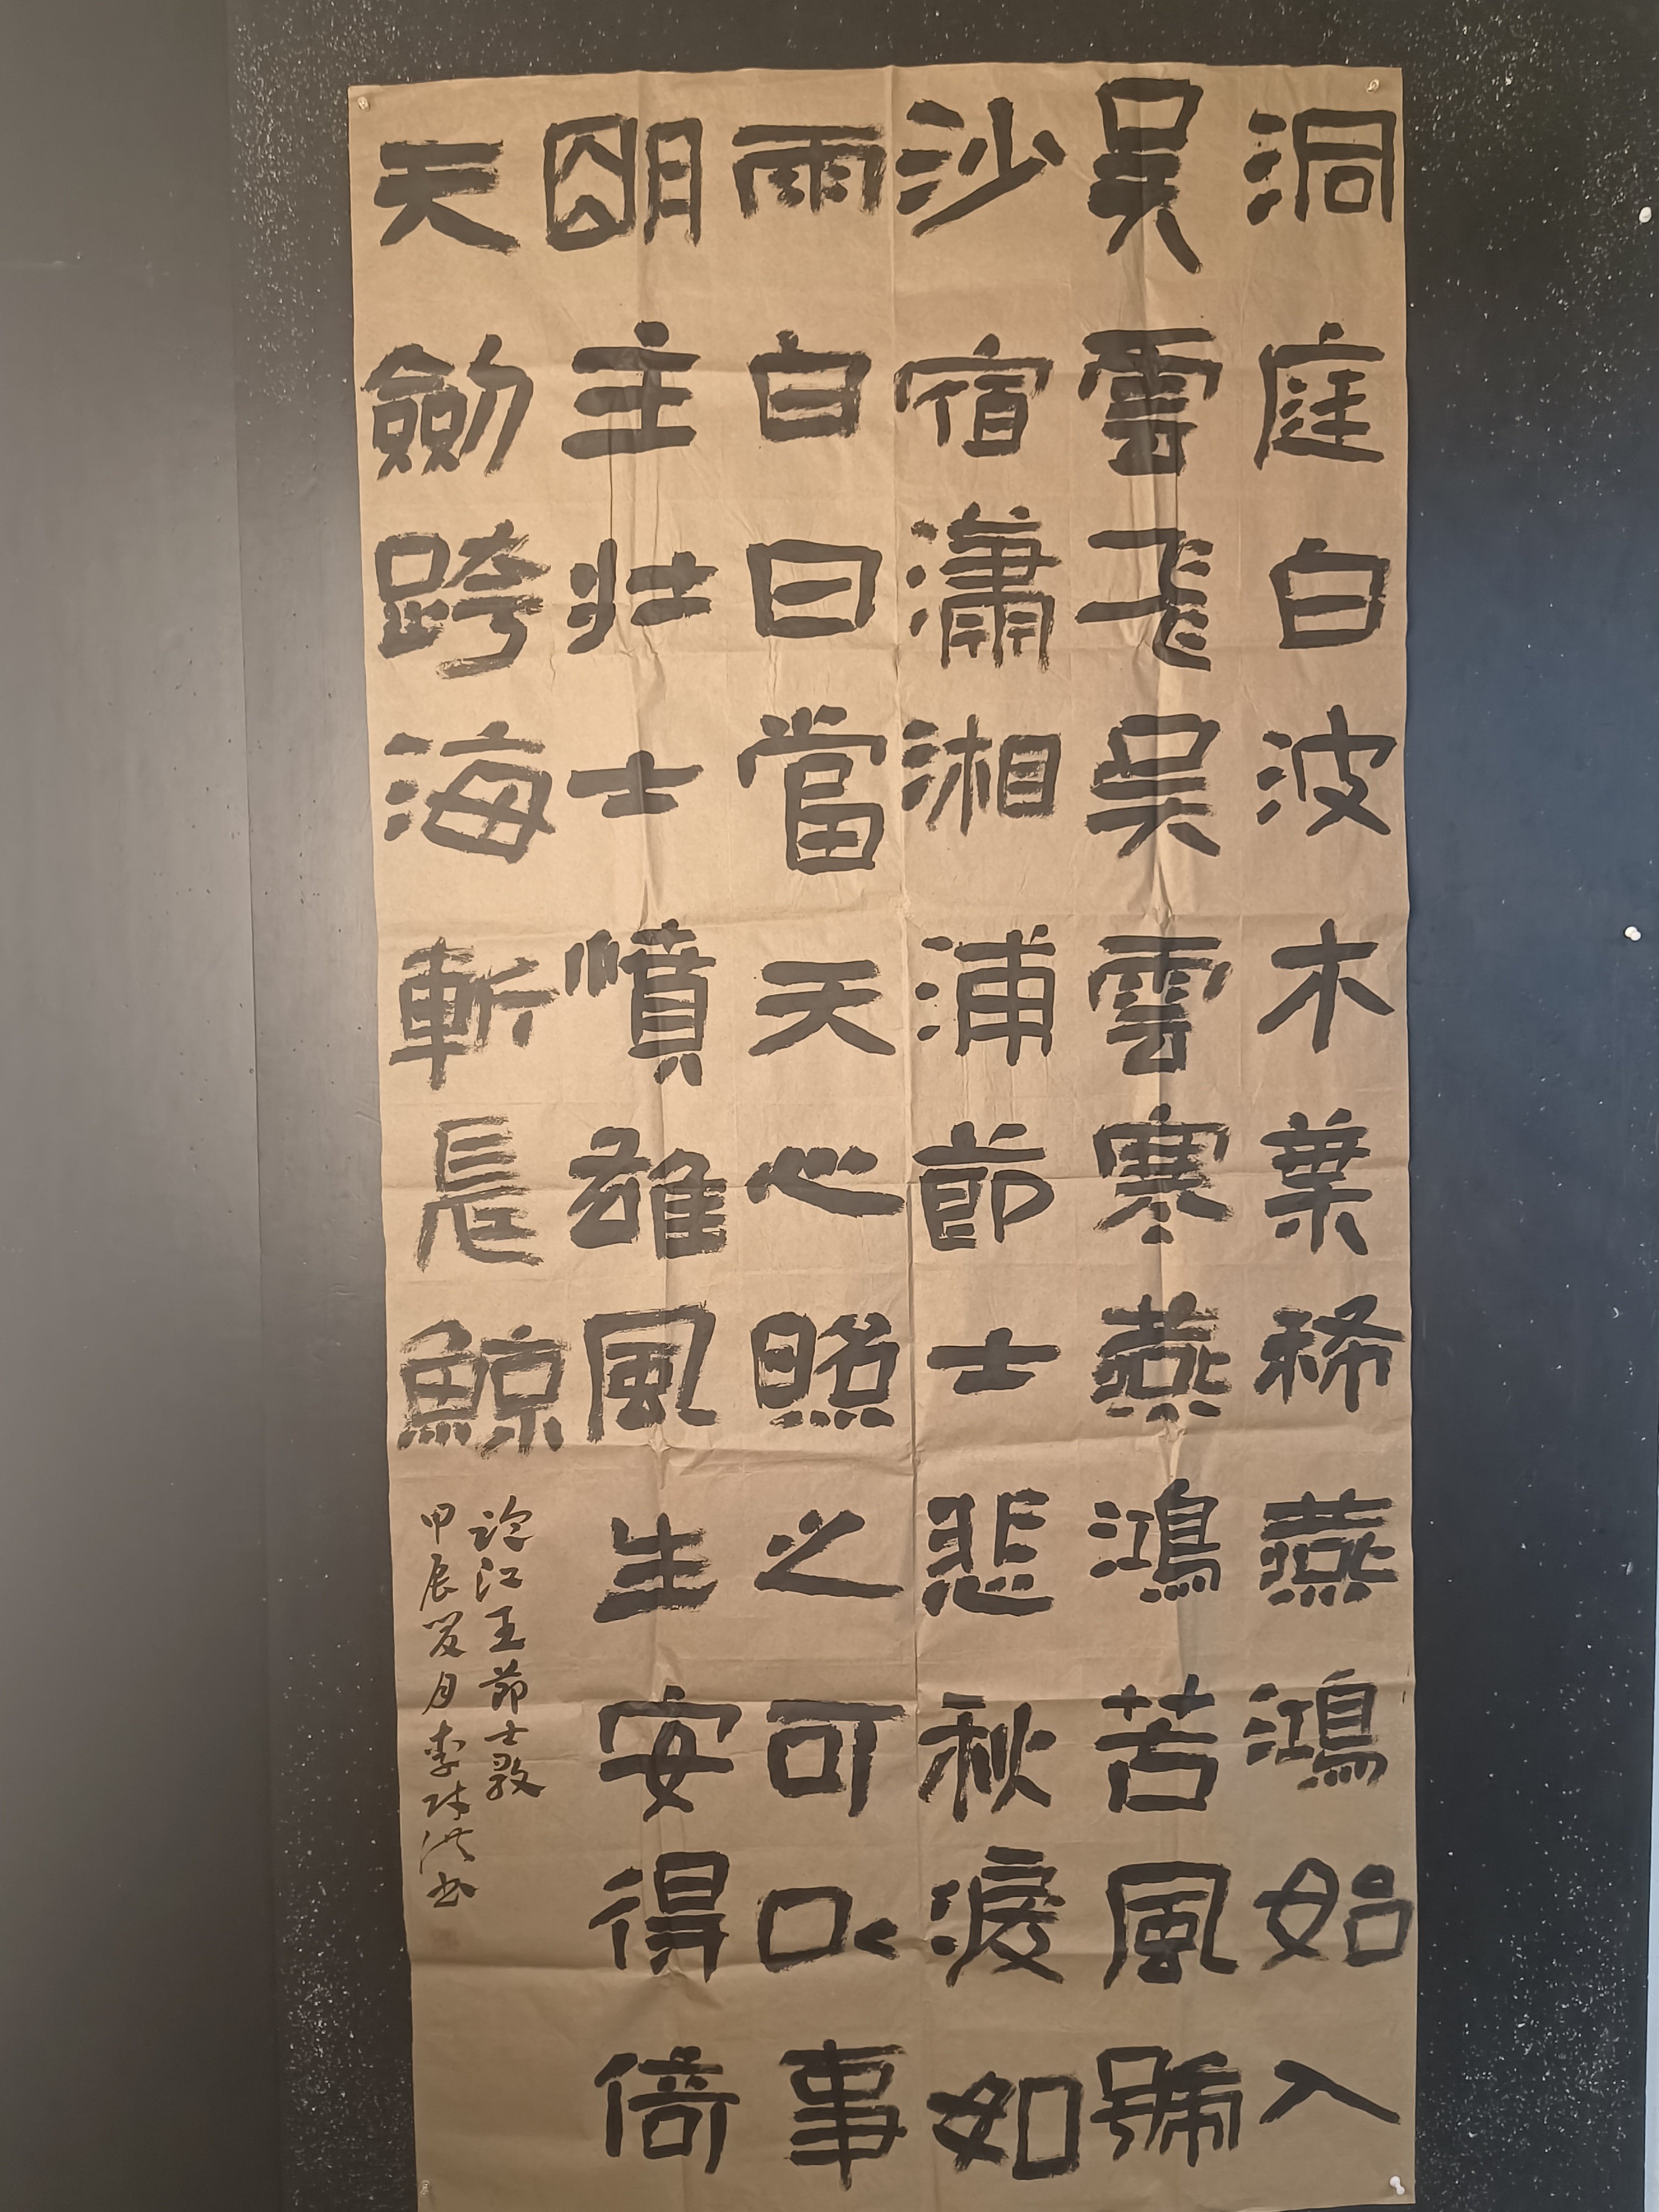 洞庭白波木葉稀燕鴻始入
吳雲飛吳雲寒燕鴻苦風號
沙宿瀟湘浦節士悲秋淚如
雨白日當天心照之可以事
朙主壯士憤雄風生安得倚
天劒跨海斬長鯨
臨江王節士歌
甲辰夏月李洪书